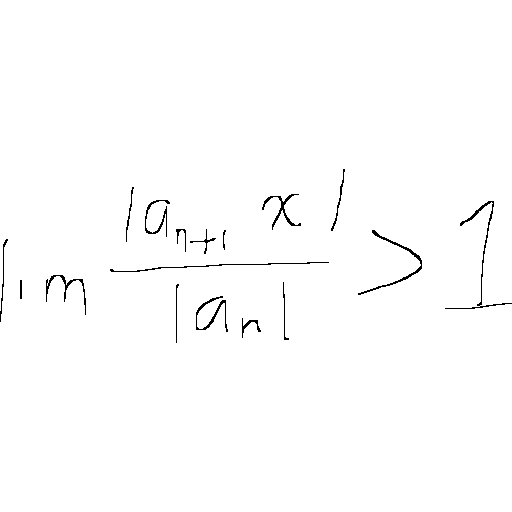 lim \frac{|a_{n+1} x|}{|a_n|} > 1